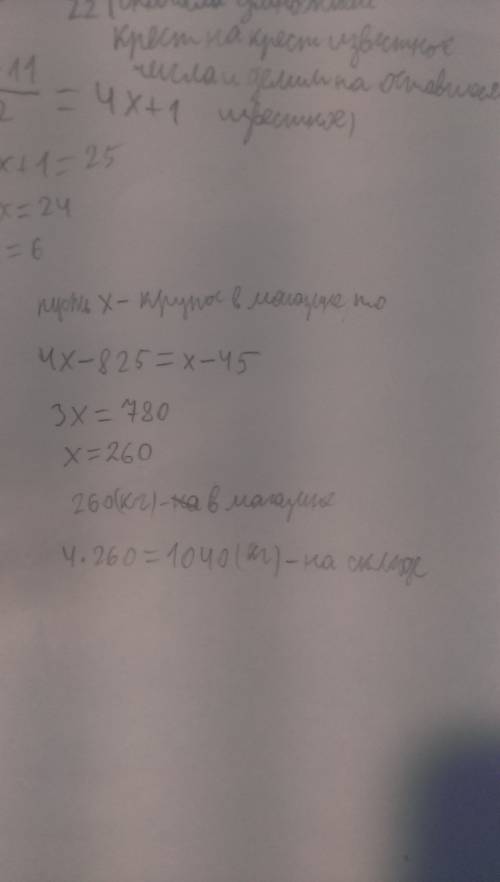 22 (сначала умножаем
крест на крест известные
числа и делим на оставшееся
11/2 = 4x+1 известное)
x+1=25
x=24
=6
пусть x - крупы в магазине то
4x-825=x-45
3x=780
x=260
260(кг)- в магазине
4·260=1040(кг)-на складе